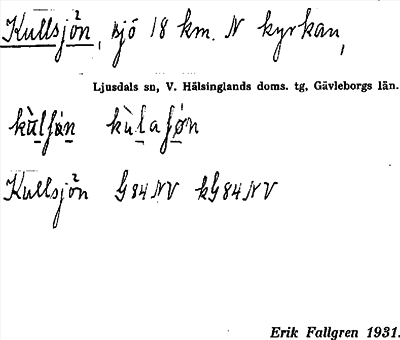 Kullsjön, sjö 18 km. N kyrkan,
Ljusdals sn, V. Hälsinglands doms. tg, Gävleborgs län.
Kullsjön G84NV kG84NV
Erik Fallgren 1931.